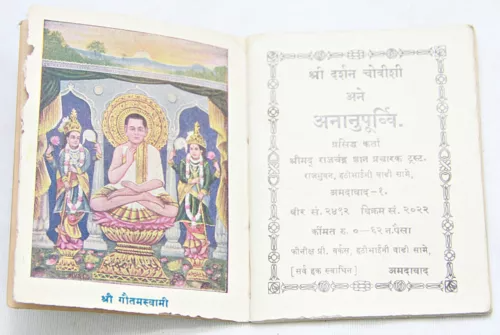 श्री गौतमस्वामी
श्री दर्शन चोवीशी
अने
अनानुपूर्व्वि.
प्रसिद्ध कर्ता
श्रीमद् राजचंद्र ज्ञान प्रचारक ट्रस्ट.
राजभुवन, हठीभाईनी वाडी सामे,
अमदावाद-१.
वीर सं. २४९२ विक्रम सं. २०२२
कींमत रु. ०-६२ न. पैसा
प्रीन्टींग वर्कस, हठीभाईनी वाडी सामे,
[सर्व हक स्वाधिन] अमदावाद